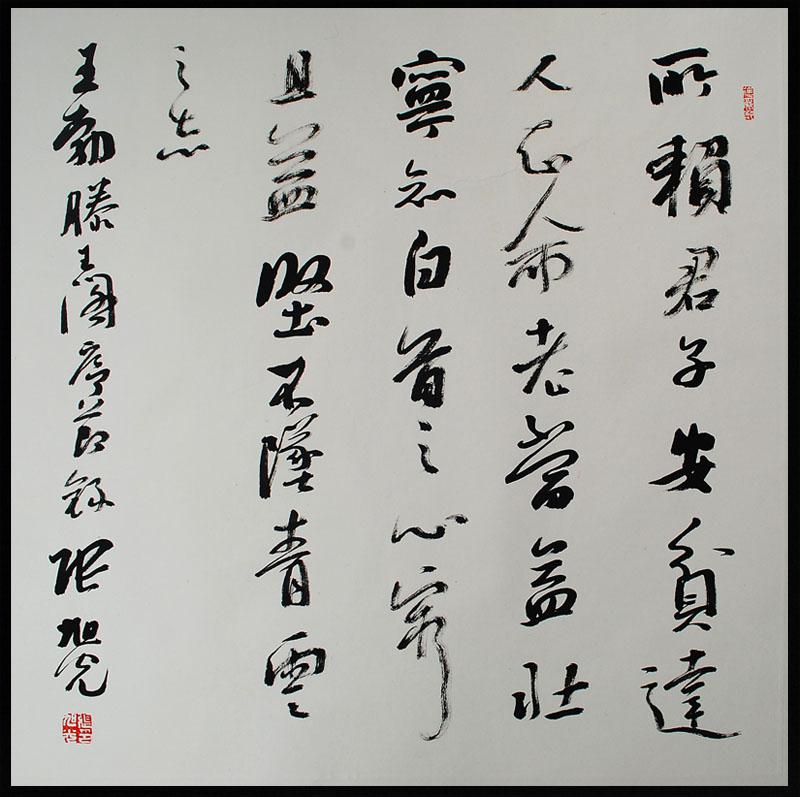 所賴君子安貧達
人知命老當益壯
寧知白首之心窮
且益堅不墜青雲
之志
王勃滕王閣序節錄張旭光